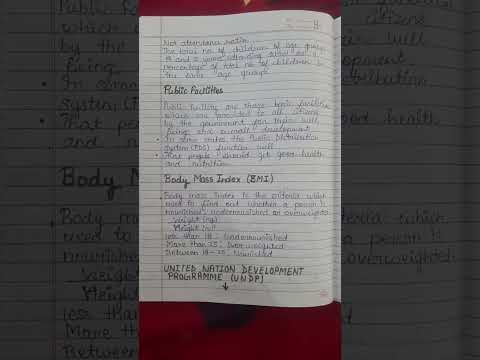 Net attendance ratio
The total no. of children of age group
14 and 15 years attending school as a
percentage of total no. of children in
the same age group
Public Facilities
Public Facility are those basic facilities
which are provided to all citizens
by the government for their well
living and overall development
In some states, the Public Distribution
system (PDS) function well
That people should get good health
and nutrition
Body Mass Index (BMI)
Body mass Index is the criteria which
used to find out whether a person is
nourished, undernourished or overweighted
Weight (kg)
Height (m)²
less than 18: Undernourished
More than 25: Over weighted
Between 18-25: Nourished
UNITED NATION DEVELOPMENT
PROGRAMME (UNDP)